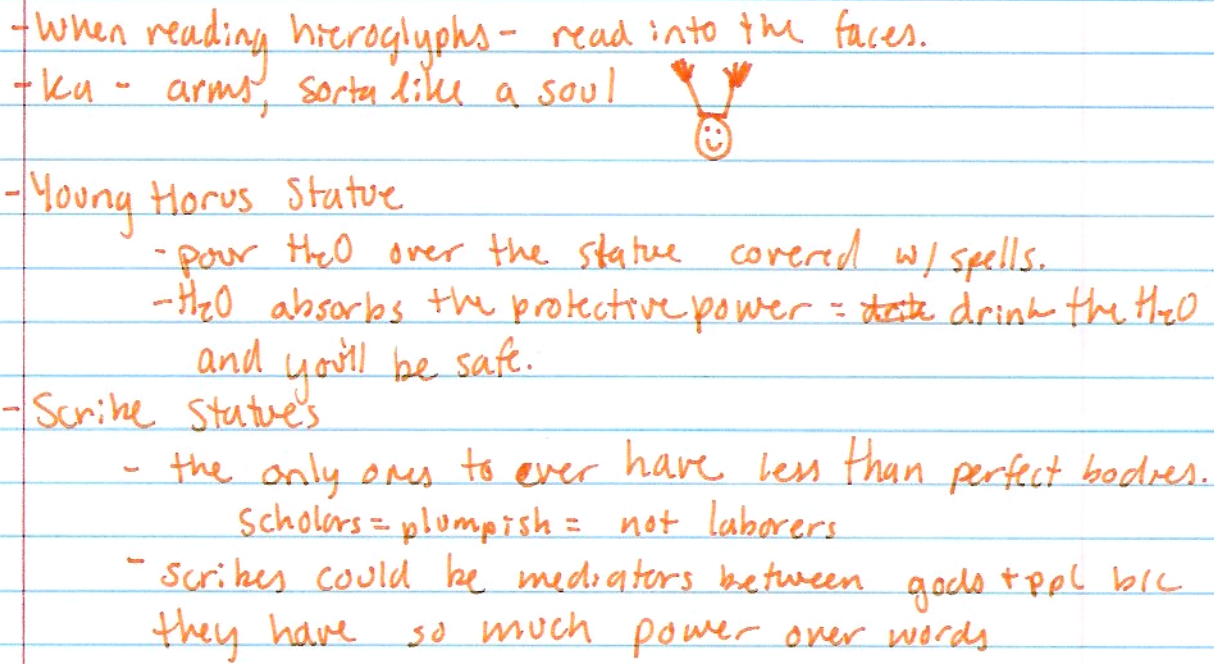 - When reading hieroglyphs - read into the faces.
- Ka - arms, sorta like a soul
- Young Horus Statue
- pour H2O over the statue covered w/ spells.
- H2O absorbs the protective power = drink the H2O
and you'll be safe.
- Scribe Statues
- the only ones to ever have less than perfect bodies.
scholars = plumpish = not laborers
- scribes could be mediators between gods + ppl b/c
they have so much power over words